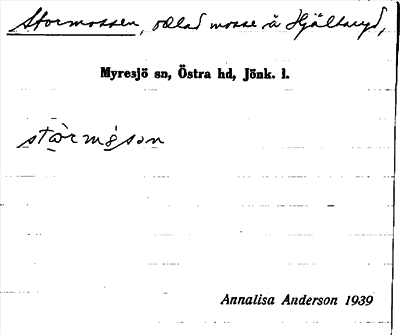 Stormossen, odlad mosse å Hjältaryd,
Myresjö sn, Östra hd, Jönk. l.
stòrmósən
Annalisa Anderson 1939